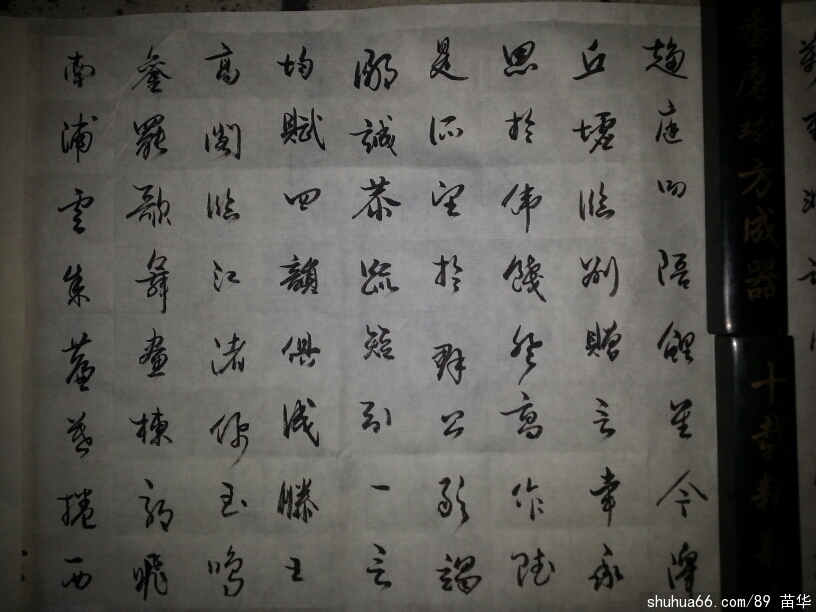 趨庭叨陪鯉對今澤
丘墟臨別贈言幸承
恩於偉餞登高作
是所望於群公敢竭
鄙誠恭疏短引一言
均賦四韻俱成滕王
高閣臨江渚佩玉鳴
鸞罷歌舞畫棟朝飛
南浦雲朱簾暮捲西
番磨琢方成器
十載耕
shuhua66.com/89 苗华